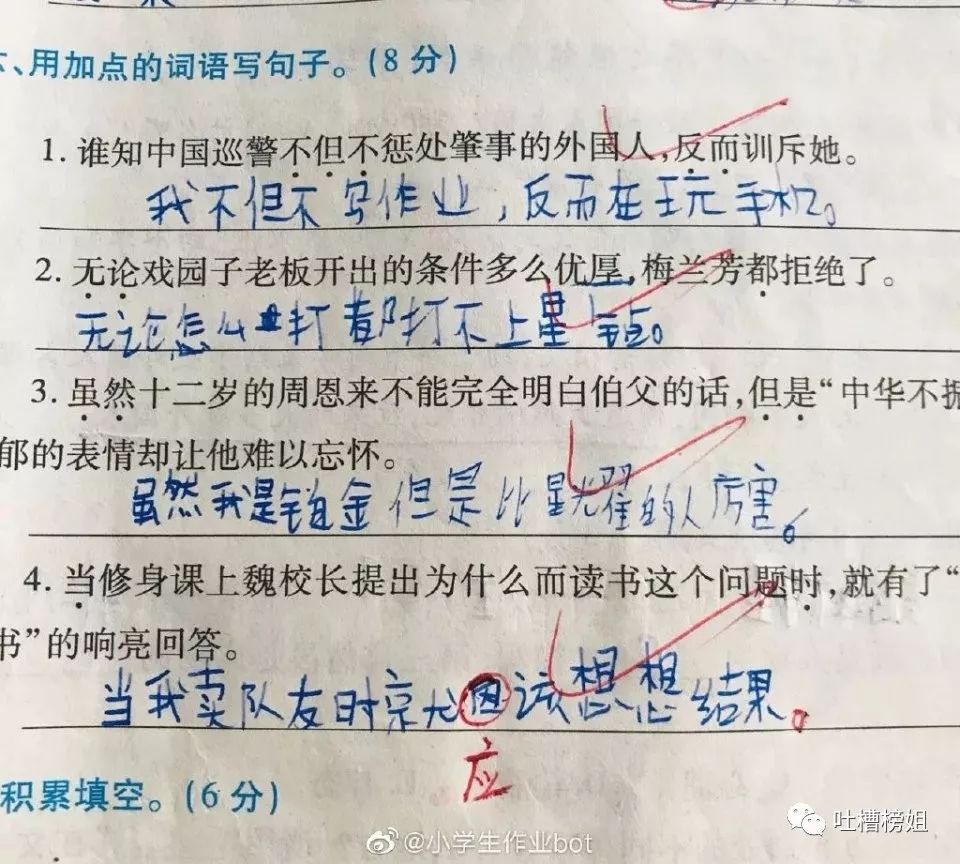 六、用加点的词语写句子。(8分)
1. 谁知中国巡警不但不惩处肇事的外国人,反而训斥她。
我不但不写作业,反而在玩手机。
2. 无论戏园子老板开出的条件多么优厚,梅兰芳都拒绝了。
无论怎么打都打不上星钻。
3. 虽然十二岁的周恩来不能完全明白伯父的话,但是“中华不振
郁的表情却让他难以忘怀。
虽然我是铂金但是比星光耀的人厉害。
4. 当修身课上魏校长提出为什么而读书这个问题时,就有了“
书”的响亮回答。
当我卖队友时京尤因该想想结果。
应
积累填空。(6分)
@小学生作业bot
吐槽榜姐